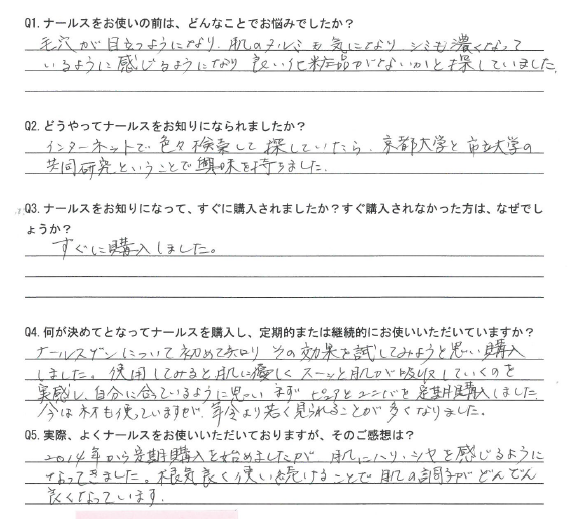 Q1. ナールスをお使いの前は、どんなことでお悩みでしたか？
毛穴が目立つようになり、肌のタルミも気になり シミも濃くなって
いるように感じるようになり 良い化粧品がないかと探していました。
Q2. どうやってナールスをお知りになられましたか？
インターネットで色々検索して探していたら、京都大学と市立大学の
共同研究ということで興味を持ちました。
Q3. ナールスをお知りになって、すぐに購入されましたか？すぐ購入されなかった方は、なぜでし
ょうか？
すぐに購入しました。
Q4. 何が決めてとなってナールスを購入し、定期的または継続的にお使いいただいていますか？
ナールスゲンについて初めて知り その効果を試してみようと思い購入
しました。使用してみると肌に優しくスーッと肌が吸収していくのを
実感し、自分に合っているように思い まず ピュアとユニバを定期購入しました
今はネオも使っていますが、年令より若く見られることが多くなりました。
Q5. 実際、よくナールスをお使いいただいておりますが、そのご感想は？
2014年から定期購入を始めましたが 肌にハリ、ツヤを感じるように
なってきました。根気良く使い続けることで肌の調子がどんどん
良くなっています.